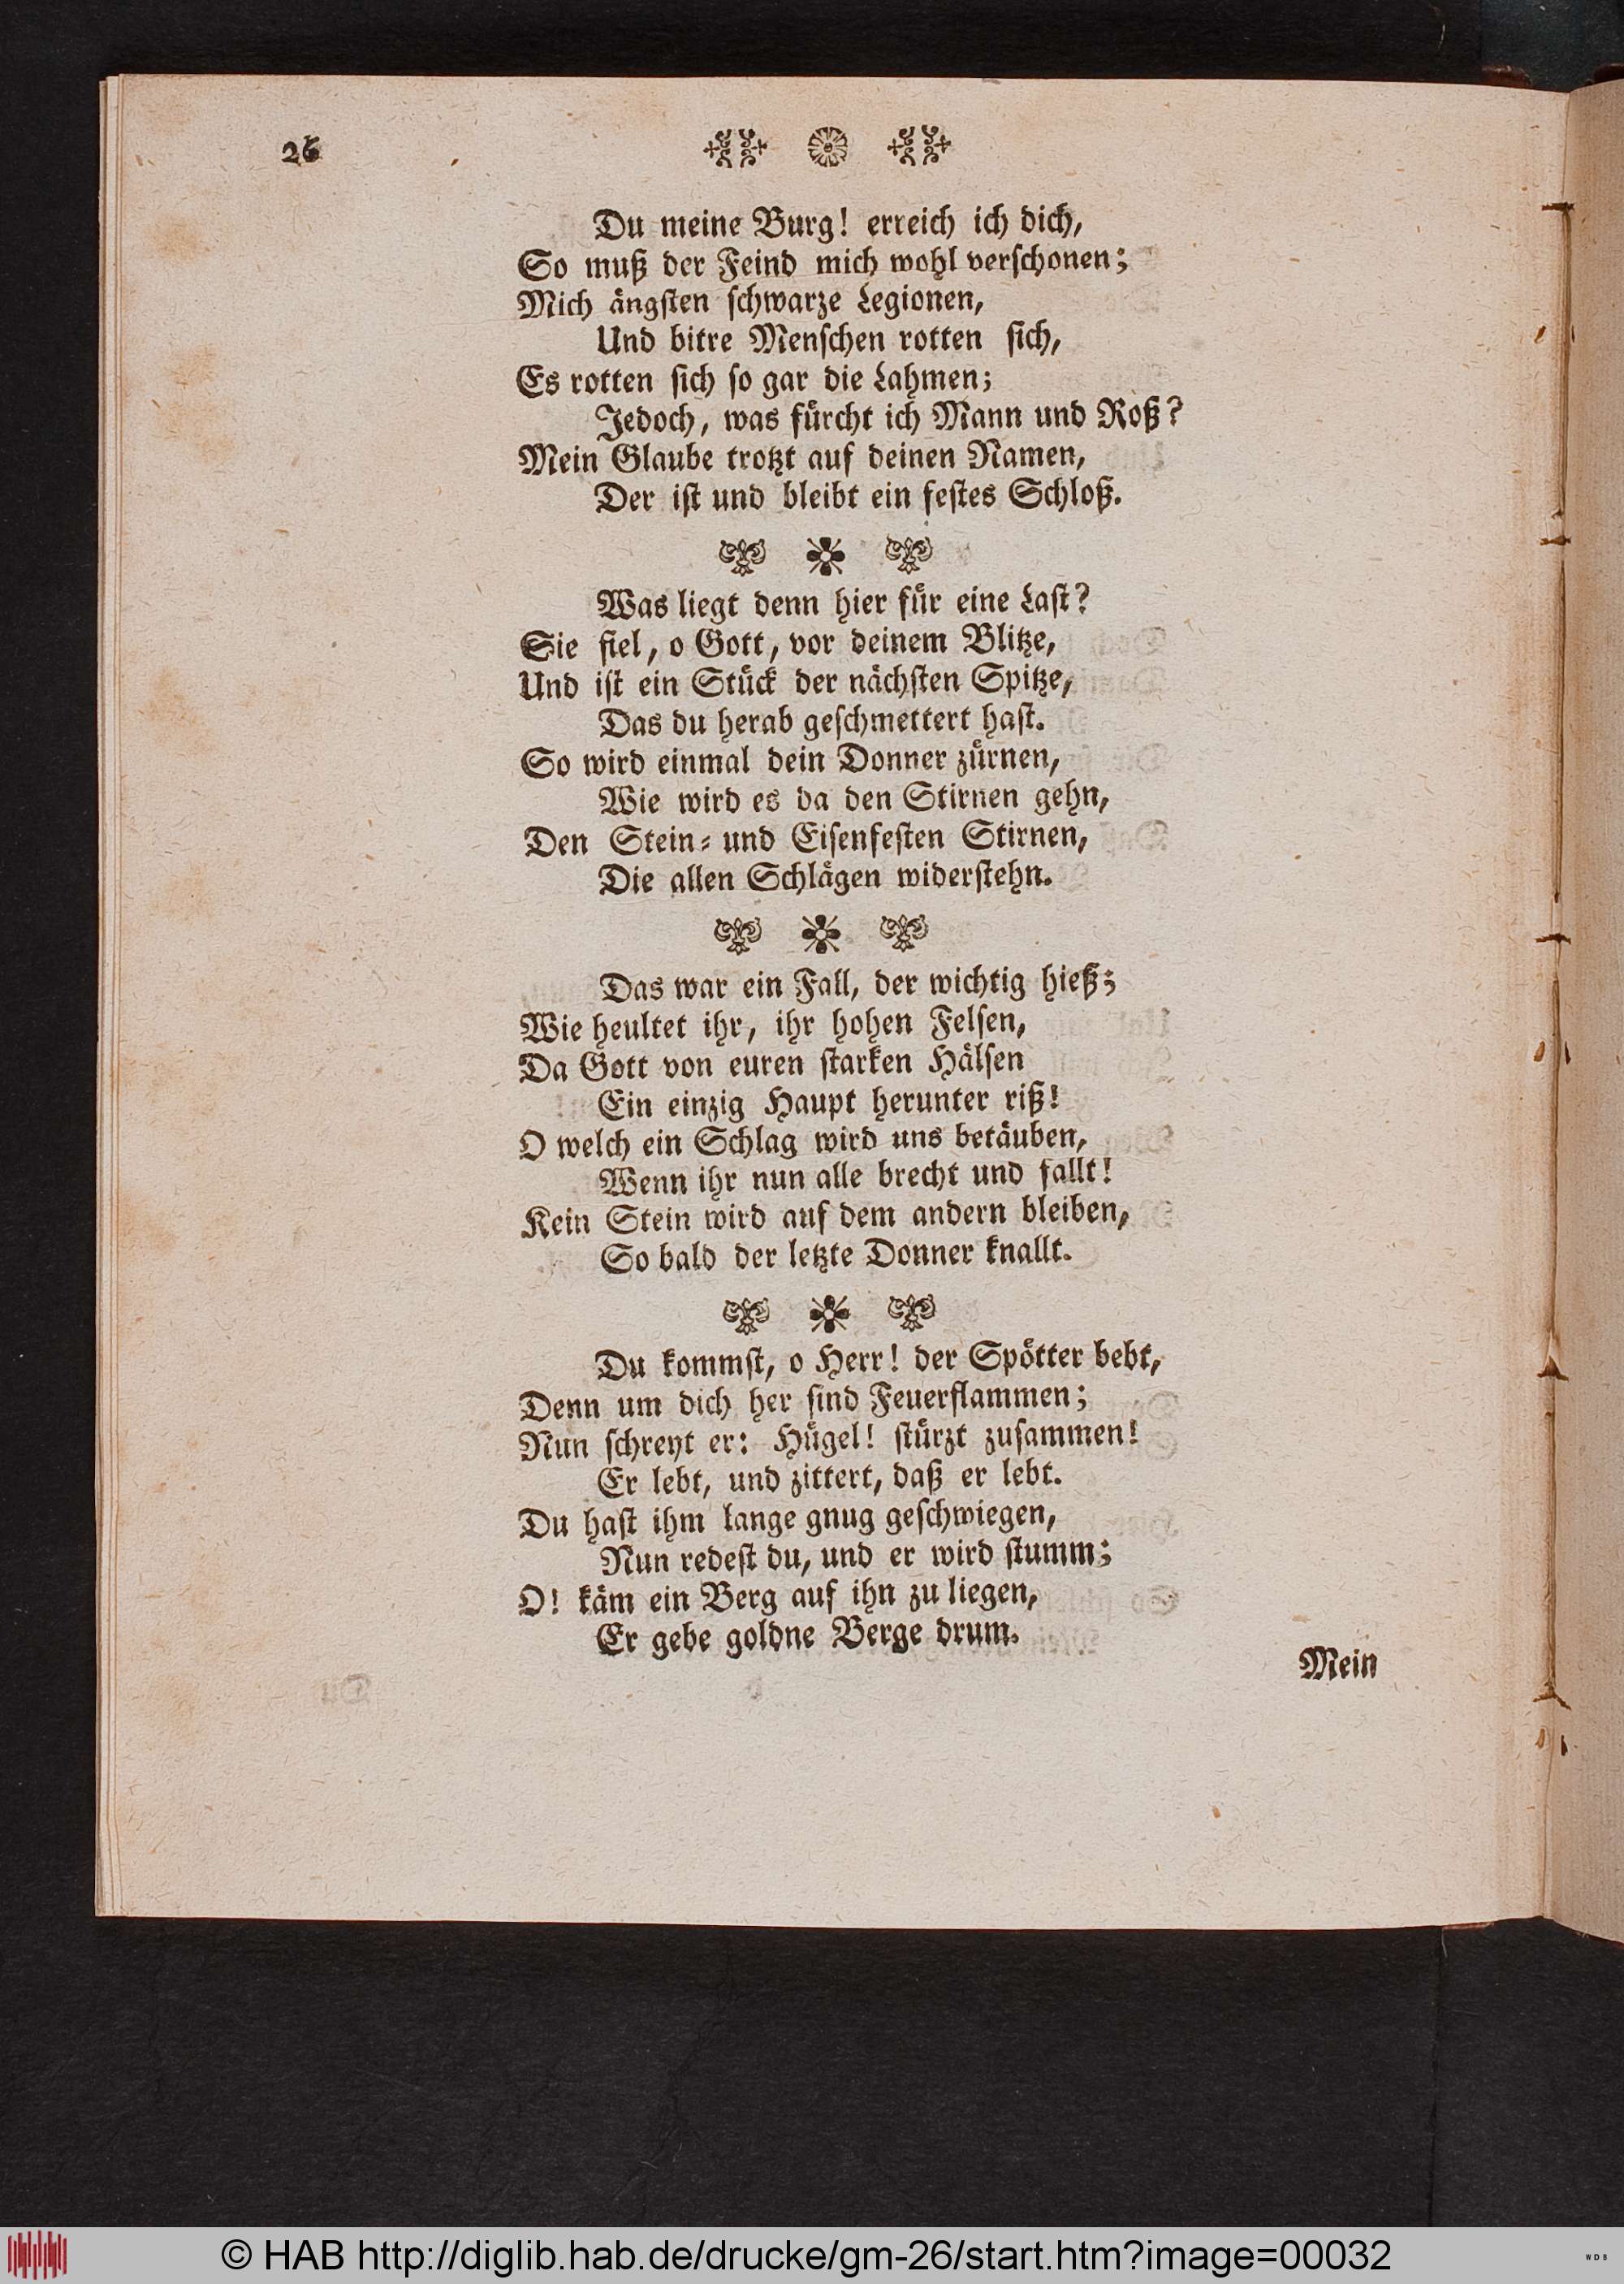 26
Du meine Burg! erreich ich dich,
So muß der Feind mich wohl verschonen;
Mich ängsten schwarze Legionen,
Und bitre Menschen rotten sich,
Es rotten sich so gar die Lahmen;
Jedoch, was fürcht ich Mann und Roß?
Mein Glaube trotzt auf deinen Namen,
Der ist und bleibt ein festes Schloß.
Was liegt denn hier für eine Last?
Sie fiel, o Gott, vor deinem Blitze,
Und ist ein Stück der nächsten Spitze,
Das du herab geschmettert hast.
So wird einmal dein Donner zürnen,
Wie wird es da den Stirnen gehn,
Den Stein- und Eisenfesten Stirnen,
Die allen Schlägen widerstehn.
Das war ein Fall, der wichtig hieß;
Wie heultet ihr, ihr hohen Felsen,
Da Gott von euren starken Hälsen
Ein einzig Haupt herunter riß!
O welch ein Schlag wird uns betäuben,
Wenn ihr nun alle brecht und fallt!
Kein Stein wird auf dem andern bleiben,
So bald der letzte Donner knallt.
Du kommst, o Herr! der Spötter bebt,
Denn um dich her sind Feuerflammen;
Nun schreyt er: Hügel! stürzt zusammen!
Er lebt, und zittert, daß er lebt.
Du hast ihm lange gnug geschwiegen,
Nun redest du, und er wird stumm;
O! käm ein Berg auf ihn zu liegen,
Er gebe goldne Berge drum.
Mein
© HAB http://diglib.hab.de/drucke/gm-26/start.htm?image=00032
WDB